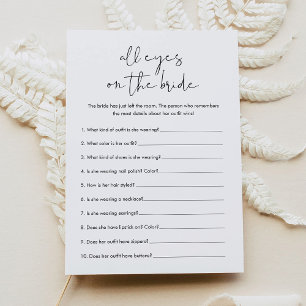 all eyes
on the bride
The bride has just left the room. The person who remembers
the most details about her outfit wins!
1. What kind of outfit is she wearing?
2. What color is her outfit?
3. What kind of shoes is she wearing?
4. Is she wearing nail polish? Color?
5. How is her hair styled?
6. Is she wearing a necklace?
7. Is she wearing earrings?
8. Does she have lipstick on? Color?
9. Does her outfit have zippers?
10. Does her outfit have buttons?